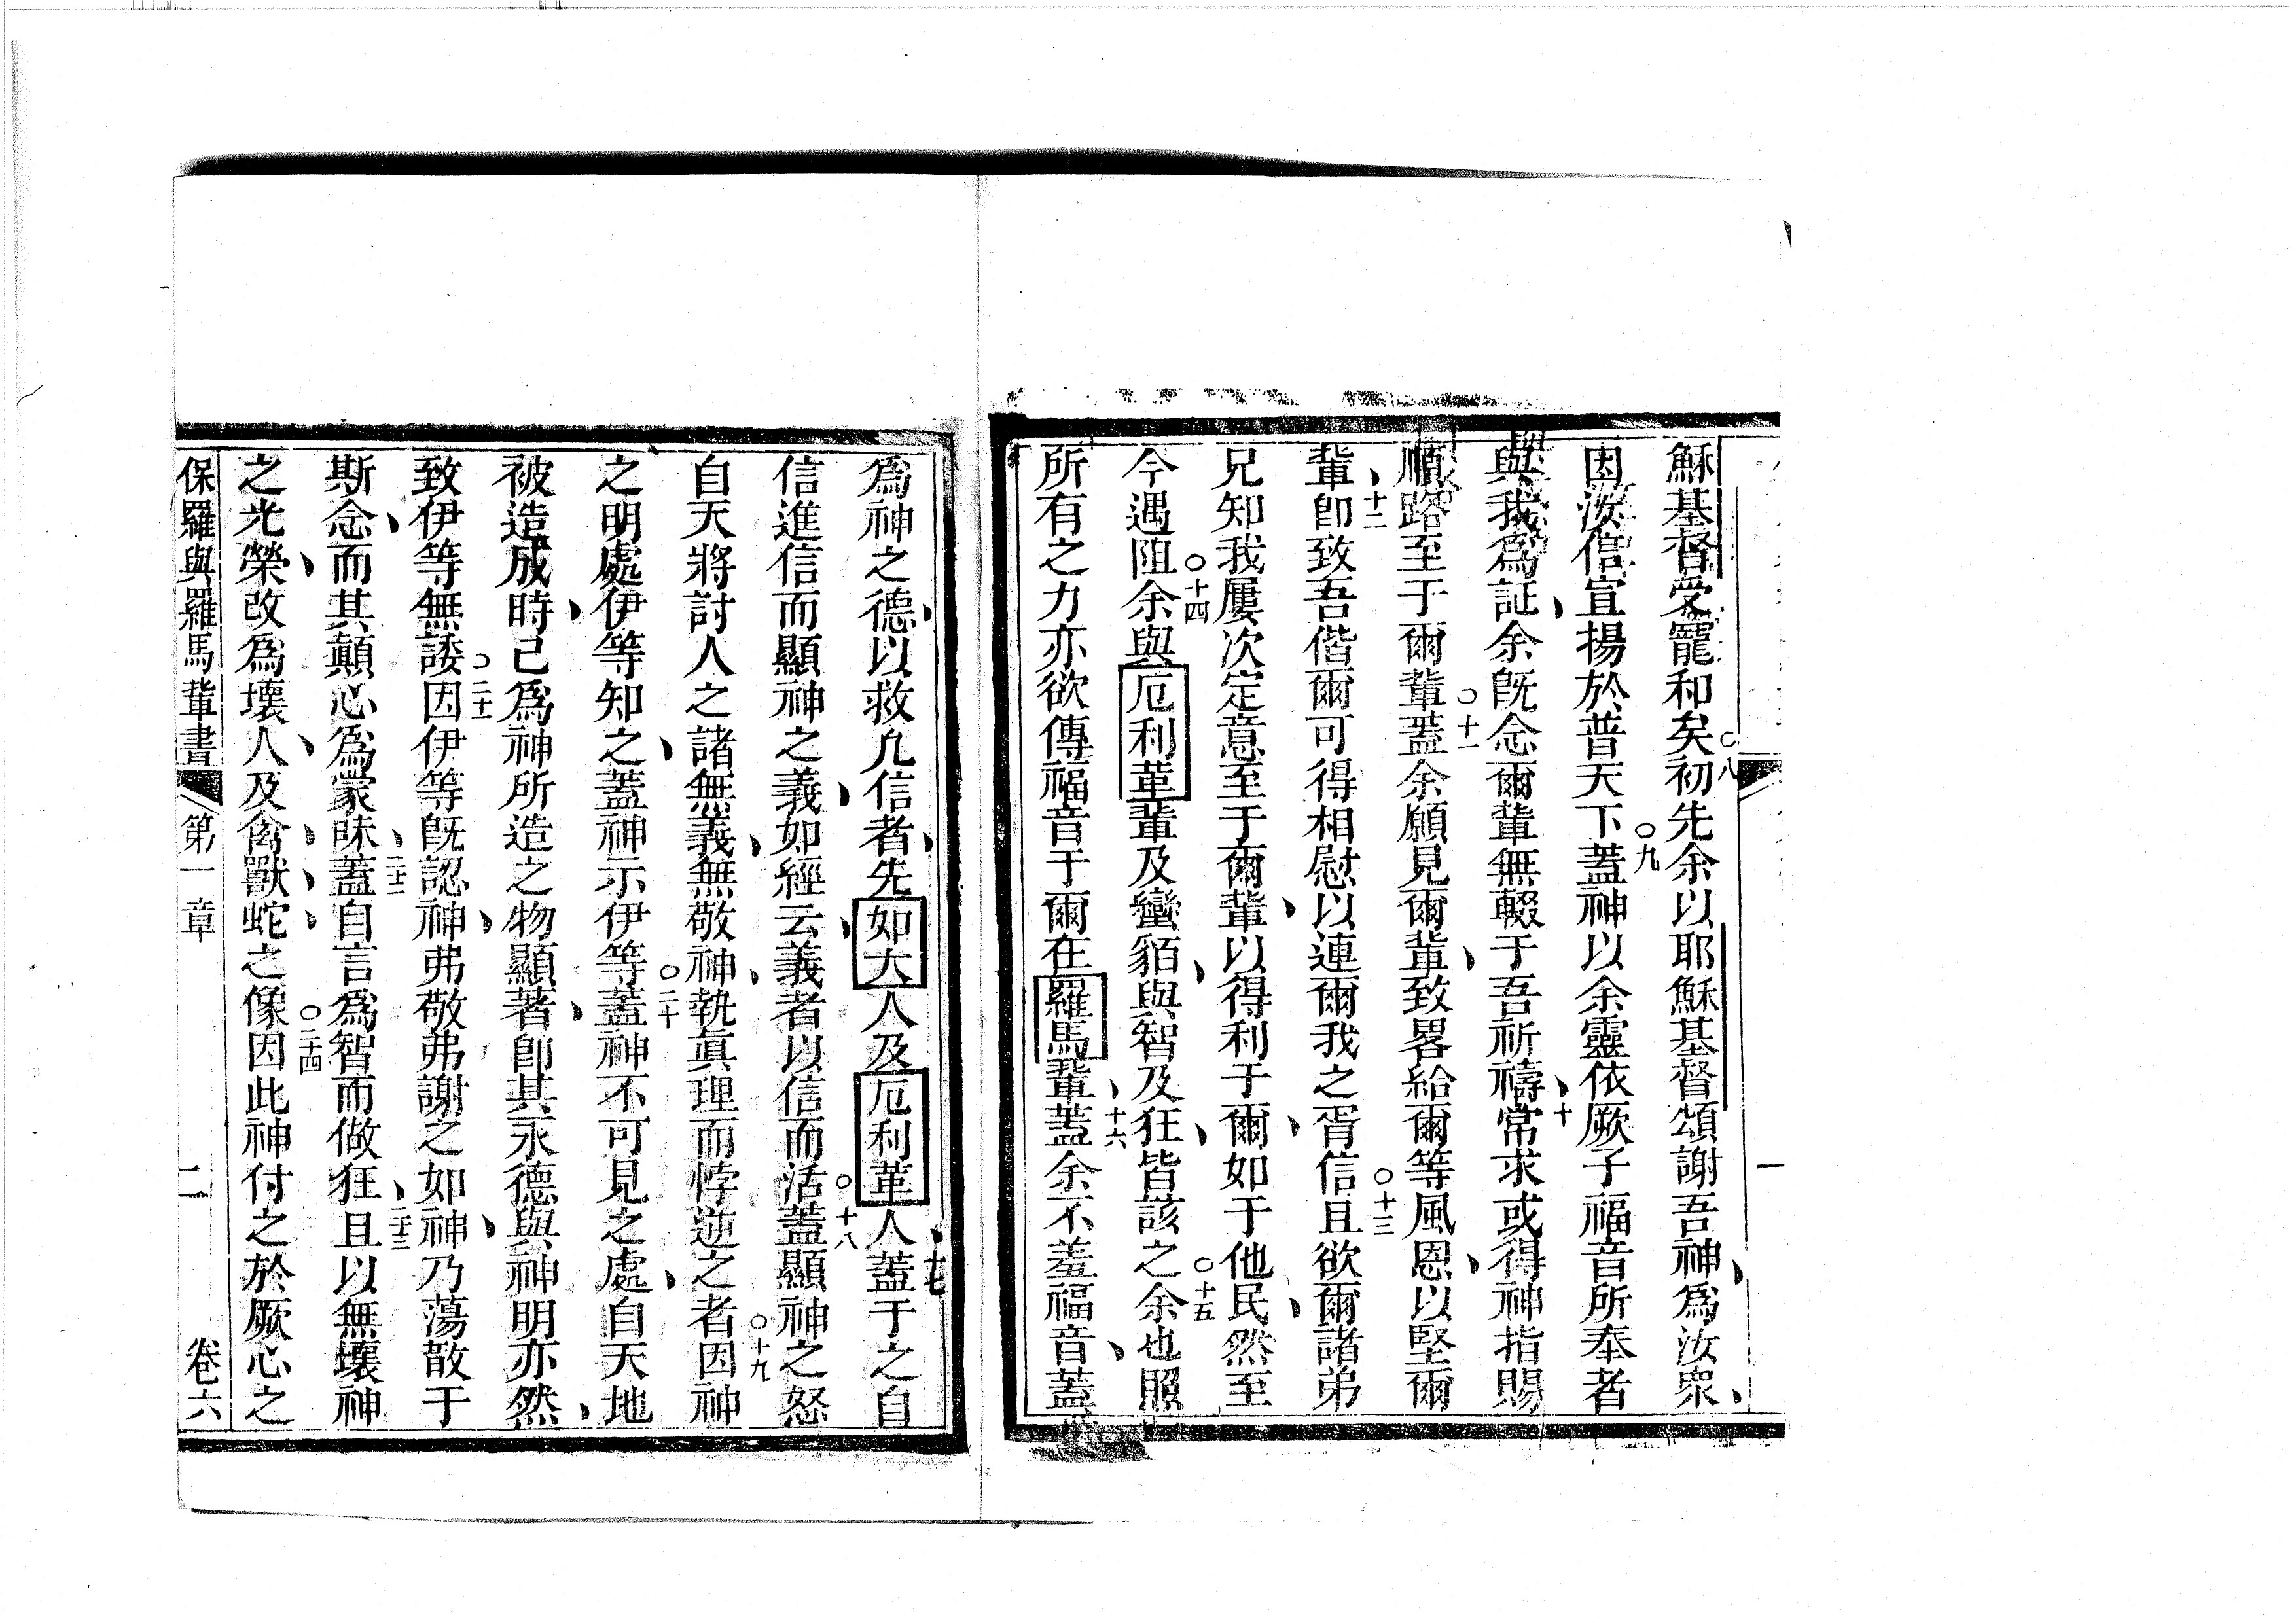 穌基督受寵和矣○八初先余以耶穌基督頌謝吾神、爲汝衆、
因汝信宣揚於普天下○九蓋神以余靈依厥子福音所奉者
與我爲証、余旣念爾輩無輟于吾祈禱、十常求或得神指賜
順路至于爾輩○十一蓋余願見爾輩、致畧給爾等風恩、以堅爾
輩、十二卽致吾偕爾可得相慰以連爾我之胥信○十三且欲爾諸弟
兄知我屢次定意至于爾輩、以得利于爾、如于他民、然至
今遇阻○十四余與厄利革輩及蠻貊、與智及狂、皆該之○十五余也照
所有之力亦欲傳福音于爾在羅馬輩、十六蓋余不羞福音、蓋
爲神之德、以救凡信者、先如大人及厄利革人、十七蓋于之自
信進信而顯神之義、如經云、義者以信而活○十八蓋顯神之怒
自天將討人之諸無義、無敬神、執眞理而悖逆之者○十九因神
之明處伊等知之、蓋神示伊等○二十蓋神不可見之處、自天地
被造成時、已爲神所造之物顯著、卽其永德與神明亦然、
致伊等無諉○二十一因伊等旣認神、弗敬弗謝之如神、乃蕩散于
斯念、而其顛心爲蒙昧、二十二蓋自言爲智而做狂、二十三且以無壞神
之光榮、改爲壞人、及禽、獸、蛇、之像○二十四因此神付之於厥心之
保羅與羅馬輩書 第一章 二 卷六